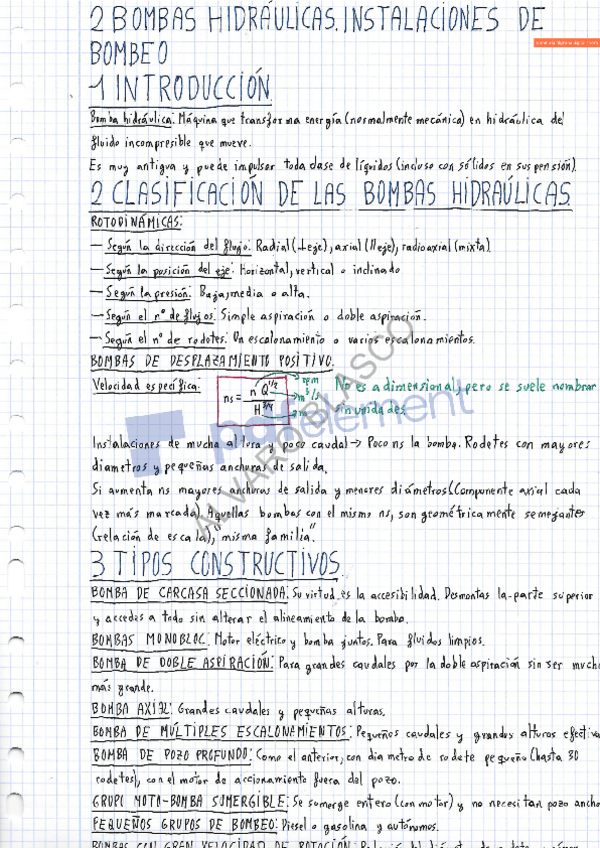 2 BOMBAS HIDRÁULICAS. INSTALACIONES DE
BOMBEO
1 INTRODUCCIÓN
Bomba hidráulica: Máquina que transforma energía (normalmente mecánica) en hidráulica del
fluido incompresible que mueve.
Es muy antigua y puede impulsar toda clase de líquidos (incluso con sólidos en suspensión).
2 CLASIFICACIÓN DE LAS BOMBAS HIDRAÚLICAS
ROTODINÁMICAS:
— Según la dirección del flujo: Radial (⊥eje), axial (//eje), radioaxial (mixta)
— Según la posición del eje: Horizontal, vertical o inclinado
— Según la presión: Baja, media o alta.
— Según el nº de flujos: Simple aspiración o doble aspiración.
— Según el nº de rodetes: Un escalonamiento o varios escalonamientos.
BOMBAS DE DESPLAZAMIENTO POSITIVO.
Velocidad específica: ns = n Q^1/2 / H^3/4 rpm m³/s m No es adimensional, pero se suele nombrar
sin unidades
Instalaciones de mucha altura y poco caudal → Poco ns la bomba. Rodetes con mayores
diametros y pequeñas anchuras de salida.
Si aumenta ns mayores anchuras de salida y menores diámetros (Componente axial cada
vez más marcada). Aquellas bombas con el mismo ns, son geométricamente semejantes
(relación de escala), "misma familia".
3 TIPOS CONSTRUCTIVOS
BOMBA DE CARCASA SECCIONADA: Su virtud es la accesibilidad. Desmontas la parte superior
y accedes a todo sin alterar el alineamiento de la bomba.
BOMBAS MONOBLOC: Motor eléctrico y bomba juntos. Para fluidos limpios.
BOMBA DE DOBLE ASPIRACIÓN: Para grandes caudales por la doble aspiración sin ser mucho
más grande.
BOMBA AXIAL: Grandes caudales y pequeñas alturas.
BOMBA DE MÚLTIPLES ESCALONAMIENTOS: Pequeños caudales y grandes alturas efectiva
BOMBA DE POZO PROFUNDO: Como el anterior, con diametro de rodete pequeño (hasta 30
rodetes), con el motor de accionamiento fuera del pozo.
GRUPO MOTO-BOMBA SUMERGIBLE: Se sumerge entero (con motor) y no necesitan pozo ancho
PEQUEÑOS GRUPOS DE BOMBEO: Diesel o gasolina y autónomos.
BOMBAS CON GRAN VELOCIDAD DE ROTACIÓN:
ALVARO BLASCO
element